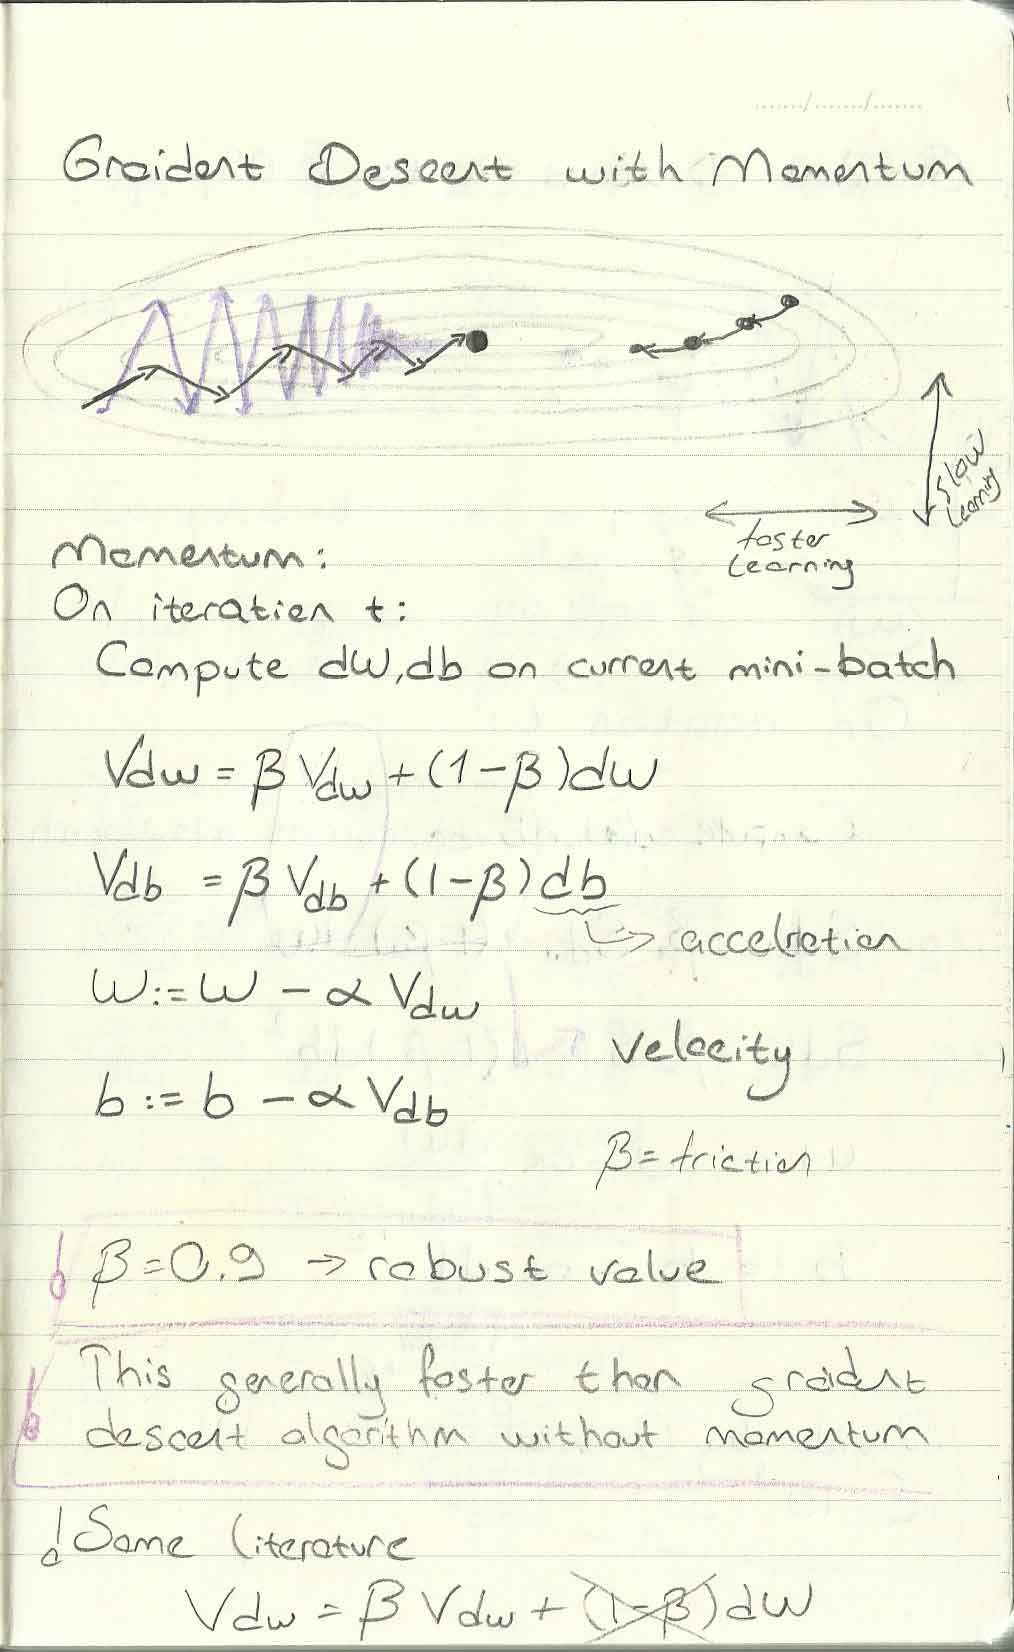 Graident Descent with Momentum
slow
learning
faster
Learning
Momentum:
On iteration t:
Compute dW, db on current mini-batch
Vdw = β Vdw + (1-β)dw
Vdb = β Vdb + (1-β) db
accelretion
W := W - α Vdw
Velocity
b := b - α Vdb
β = friction
β = 0.9 → robust value
This generally faster than graident
descent algorithm without momentum
! Some Literature
Vdw = β Vdw + (1-β) dW